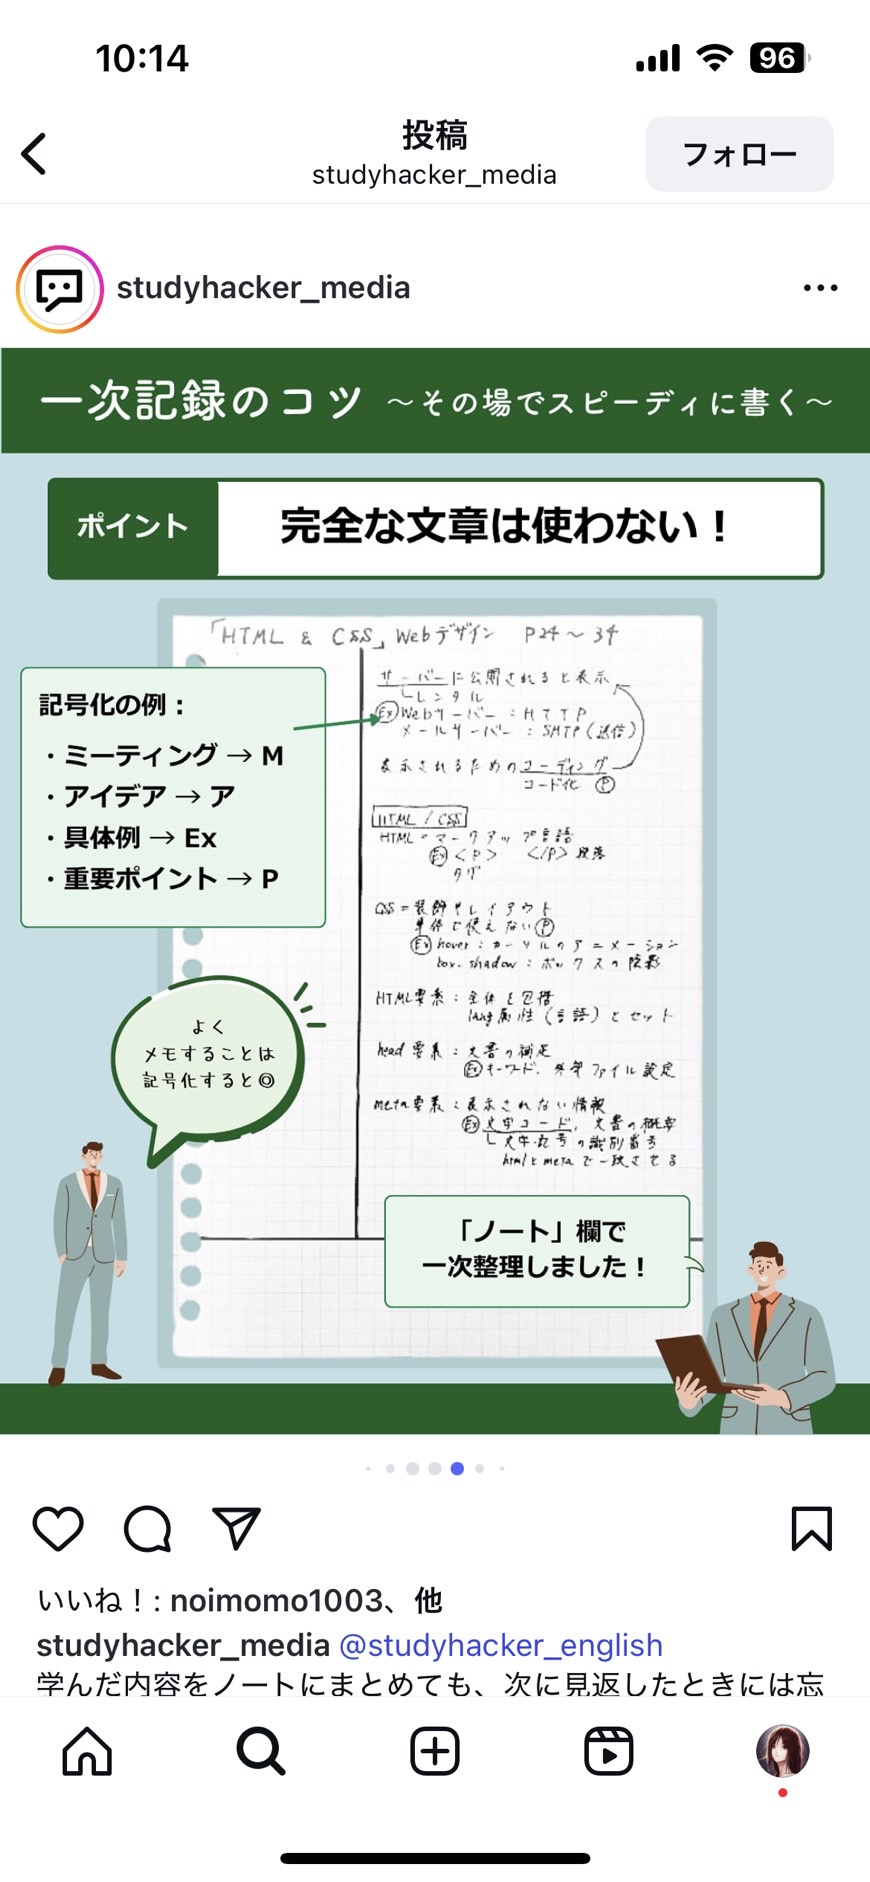 10:14
96
投稿
studyhacker_media
フォロー
studyhacker_media
一次記録のコツ ～その場でスピーディに書く～
ポイント
完全な文章は使わない！
「HTML & CSS」Webデザイン P24～34
記号化の例：
・ミーティング → M
・アイデア → ア
・具体例 → Ex
・重要ポイント → P
サーバーに公開されると表示
レンタル
Ex Webサーバー：HTTP
メールサーバー：SMTP（送信）
表示されるためのコーディング
コード化 P
HTML / CSS
HTML=マークアップ言語
Ex <P> </P> 段落
タグ
CSS=装飾やレイアウト
単体で使えない P
Ex hover：カーソルのアニメーション
box-shadow：ボックスの陰影
HTML要素：全体を包括
lang属性（言語）とセット
head 要素：文書の補足
Ex キーワード、外部ファイル設定
meta要素：表示されない情報
Ex 文字コード、文書の概要
文字・記号の識別番号
htmlとmetaで一致させる
よく
メモすることは
記号化すると◎
「ノート」欄で
一次整理しました！
いいね！: noimomo1003、他
studyhacker_media @studyhacker_english
学んだ内容をノートにまとめても、次に見返したときには忘